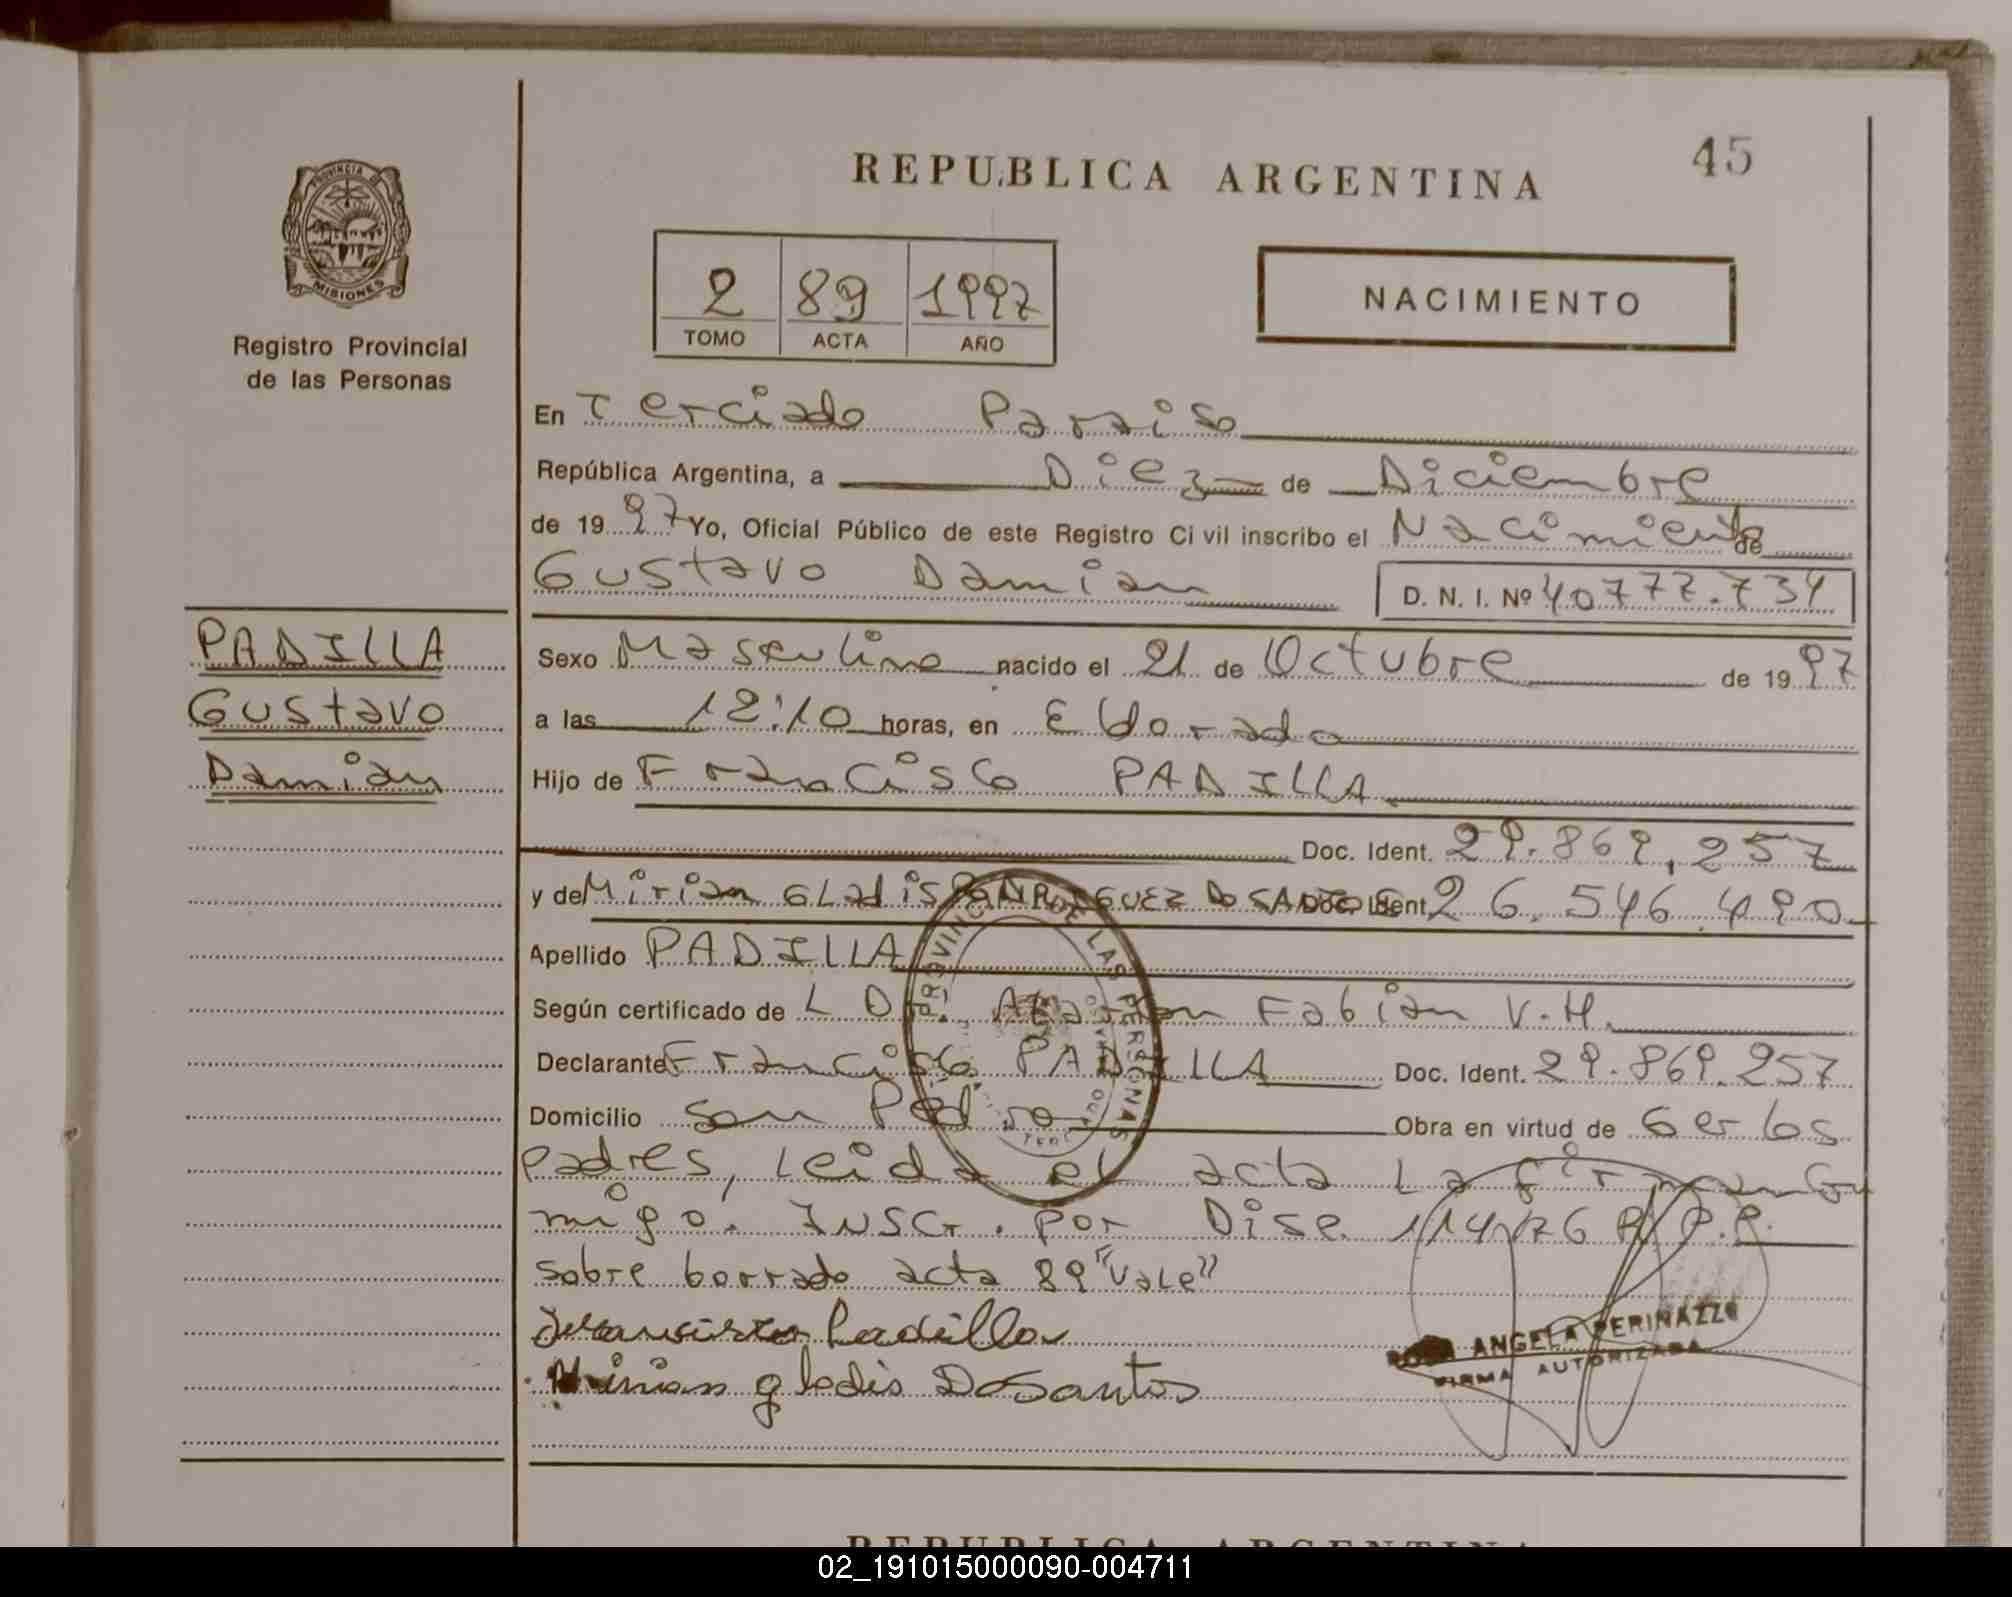 45
REPUBLICA ARGENTINA
PROVINCIA DE
MISIONES
Registro Provincial
de las Personas
2 89 1997
TOMO ACTA AÑO
NACIMIENTO
En Terciado Paraiso
República Argentina, a Diez de Diciembre
de 1997 Yo, Oficial Público de este Registro Civil inscribo el Nacimiento de
Gustavo Damian D. N. I. Nº 40777.734
PADILLA
Gustavo
Damian
Sexo Masculino nacido el 21 de Octubre de 1997
a las 12:10 horas, en Eldorado
Hijo de Francisco PADILLA
Doc. Ident. 29.869.257
y de Mirian GLadis DO SANTOS Doc. Ident. 26.546.490
Apellido PADILLA
Según certificado de L D Fabian V.H.
Declarante Francisco PADILLA Doc. Ident. 29.869.257
Domicilio San Pedro Obra en virtud de Ser los
padres, Leida el acta La firman Con
migo. INSCr. por Disp. 114/76 R.P.P.
sobre borrado acta 89 "Vale"
Fransisco Padilla
Mirian gladis DoSantos
PROVINCIAL DE LAS PERSONAS
ROSA ANGELA PERINAZZO
FIRMA AUTORIZADA
REPUBLICA ARGENTINA
02_191015000090-004711